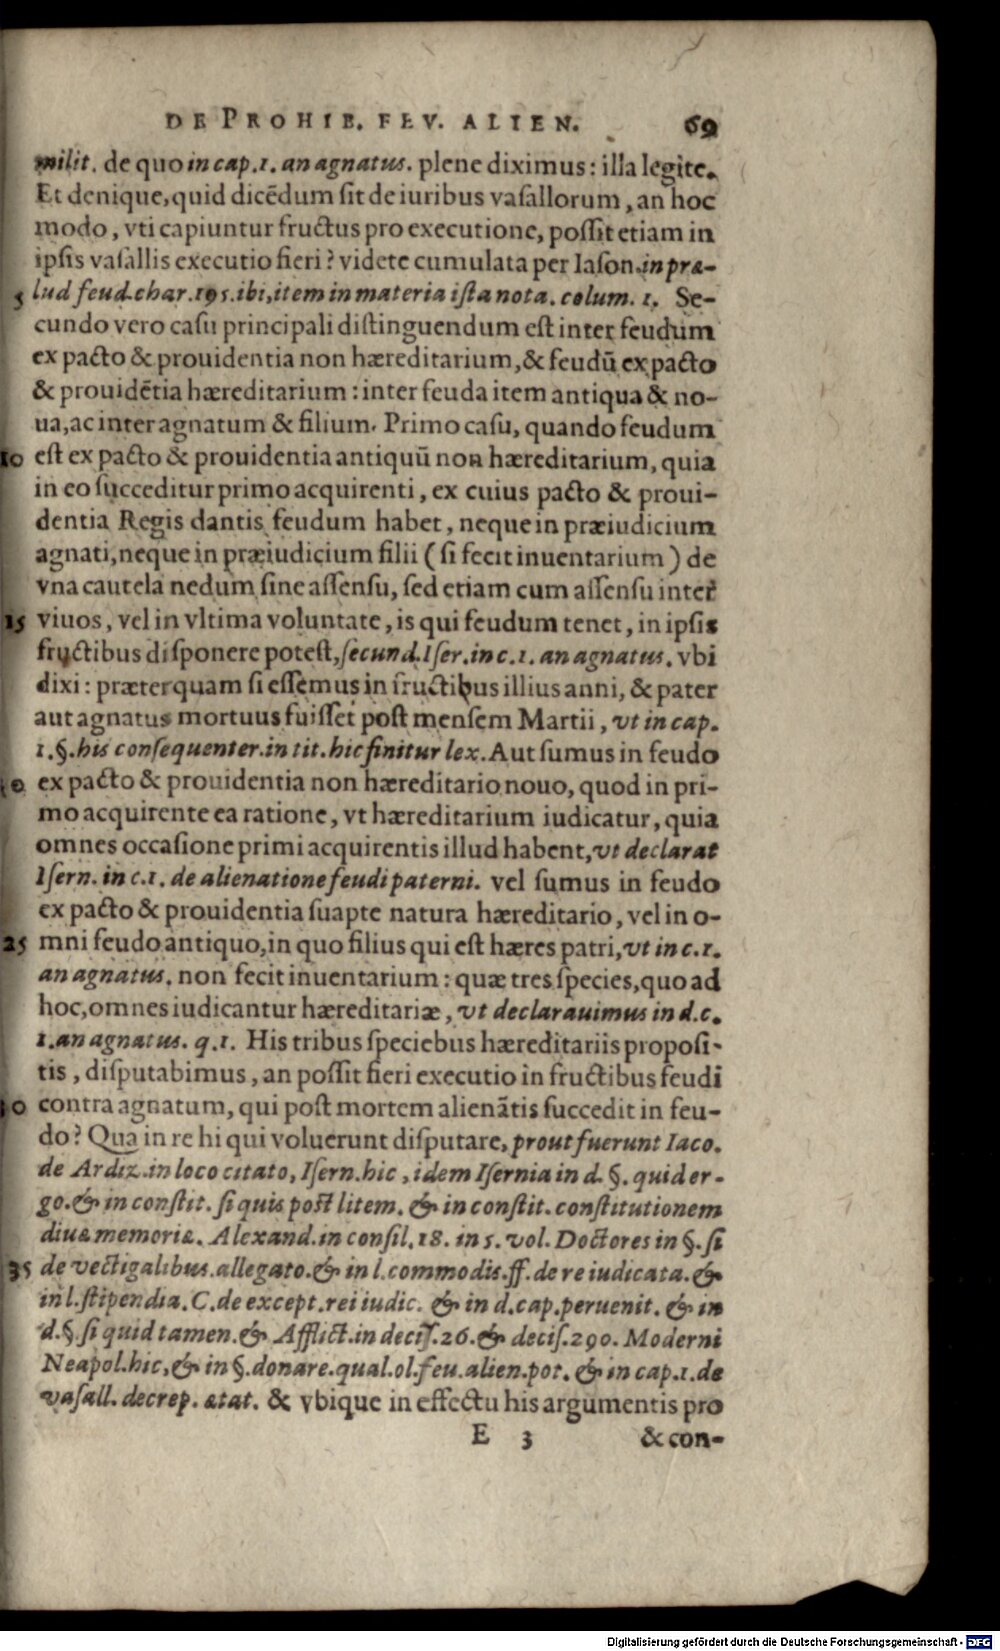 DE PROHIB. FEV. ALIEN. 69
milit. de quo in cap. 1. an agnatus. plene diximus: illa legite.
Et denique, quid dicēdum sit de iuribus vasallorum, an hoc
modo, vti capiuntur fructus pro executione, possit etiam in
ipsis vasallis executio fieri? videte cumulata per Iason. in præ-
5 lud feud. char. 195. ibi, item in materia ista nota. colum. 1. Se-
cundo vero casu principali distinguendum est inter feudum
ex pacto & prouidentia non hæreditarium, & feudū ex pacto
& prouidētia hæreditarium: inter feuda item antiqua & no-
ua, ac inter agnatum & filium. Primo casu, quando feudum
10 est ex pacto & prouidentia antiquū non hæreditarium, quia
in eo succeditur primo acquirenti, ex cuius pacto & proui-
dentia Regis dantis feudum habet, neque in præiudicium
agnati, neque in præiudicium filii (si fecit inuentarium) de
vna cautela nedum sine assensu, sed etiam cum assensu inter
15 viuos, vel in vltima voluntate, is qui feudum tenet, in ipsis
fructibus disponere potest, secund. Iser. in c. 1. an agnatus. vbi
dixi: præterquam si essemus in fructibus illius anni, & pater
aut agnatus mortuus fuisset post mensem Martii, vt in cap.
1. §. his consequenter. in tit. hic finitur lex. Aut sumus in feudo
20 ex pacto & prouidentia non hæreditario nouo, quod in pri-
mo acquirente ea ratione, vt hæreditarium iudicatur, quia
omnes occasione primi acquirentis illud habent, vt declarat
Isern. in c. 1. de alienatione feudi paterni. vel sumus in feudo
ex pacto & prouidentia suapte natura hæreditario, vel in o-
25 mni feudo antiquo, in quo filius qui est hæres patri, vt in c. 1.
an agnatus. non fecit inuentarium: quæ tres species, quo ad
hoc, omnes iudicantur hæreditariæ, vt declarauimus in d. c.
1. an agnatus. q. 1. His tribus speciebus hæreditariis proposi-
tis, disputabimus, an possit fieri executio in fructibus feudi
30 contra agnatum, qui post mortem alienātis succedit in feu-
do? Qua in re hi qui voluerunt disputare, prout fuerunt Iaco.
de Ardiz. in loco citato, Isern. hic, idem Isernia in d. §. quid er-
go. & in constit. si quis post litem. & in constit. constitutionem
diuæ memoriæ. Alexand. in consil. 18. in 5. vol. Doctores in §. si
35 de vectigalibus. allegato. & in l. commodis. ff. de re iudicata. &
in l. stipendia. C. de except. rei iudic. & in d. cap. peruenit. & in
d. §. si quid tamen. & Afflict. in decis. 26. & decis. 290. Moderni
Neapol. hic, & in §. donare. qual. ol. feu. alien. pot. & in cap. 1. de
vasall. decrep. ætat. & vbique in effectu his argumentis pro
E 3 & con-
Digitalisierung gefördert durch die Deutsche Forschungsgemeinschaft - DFG